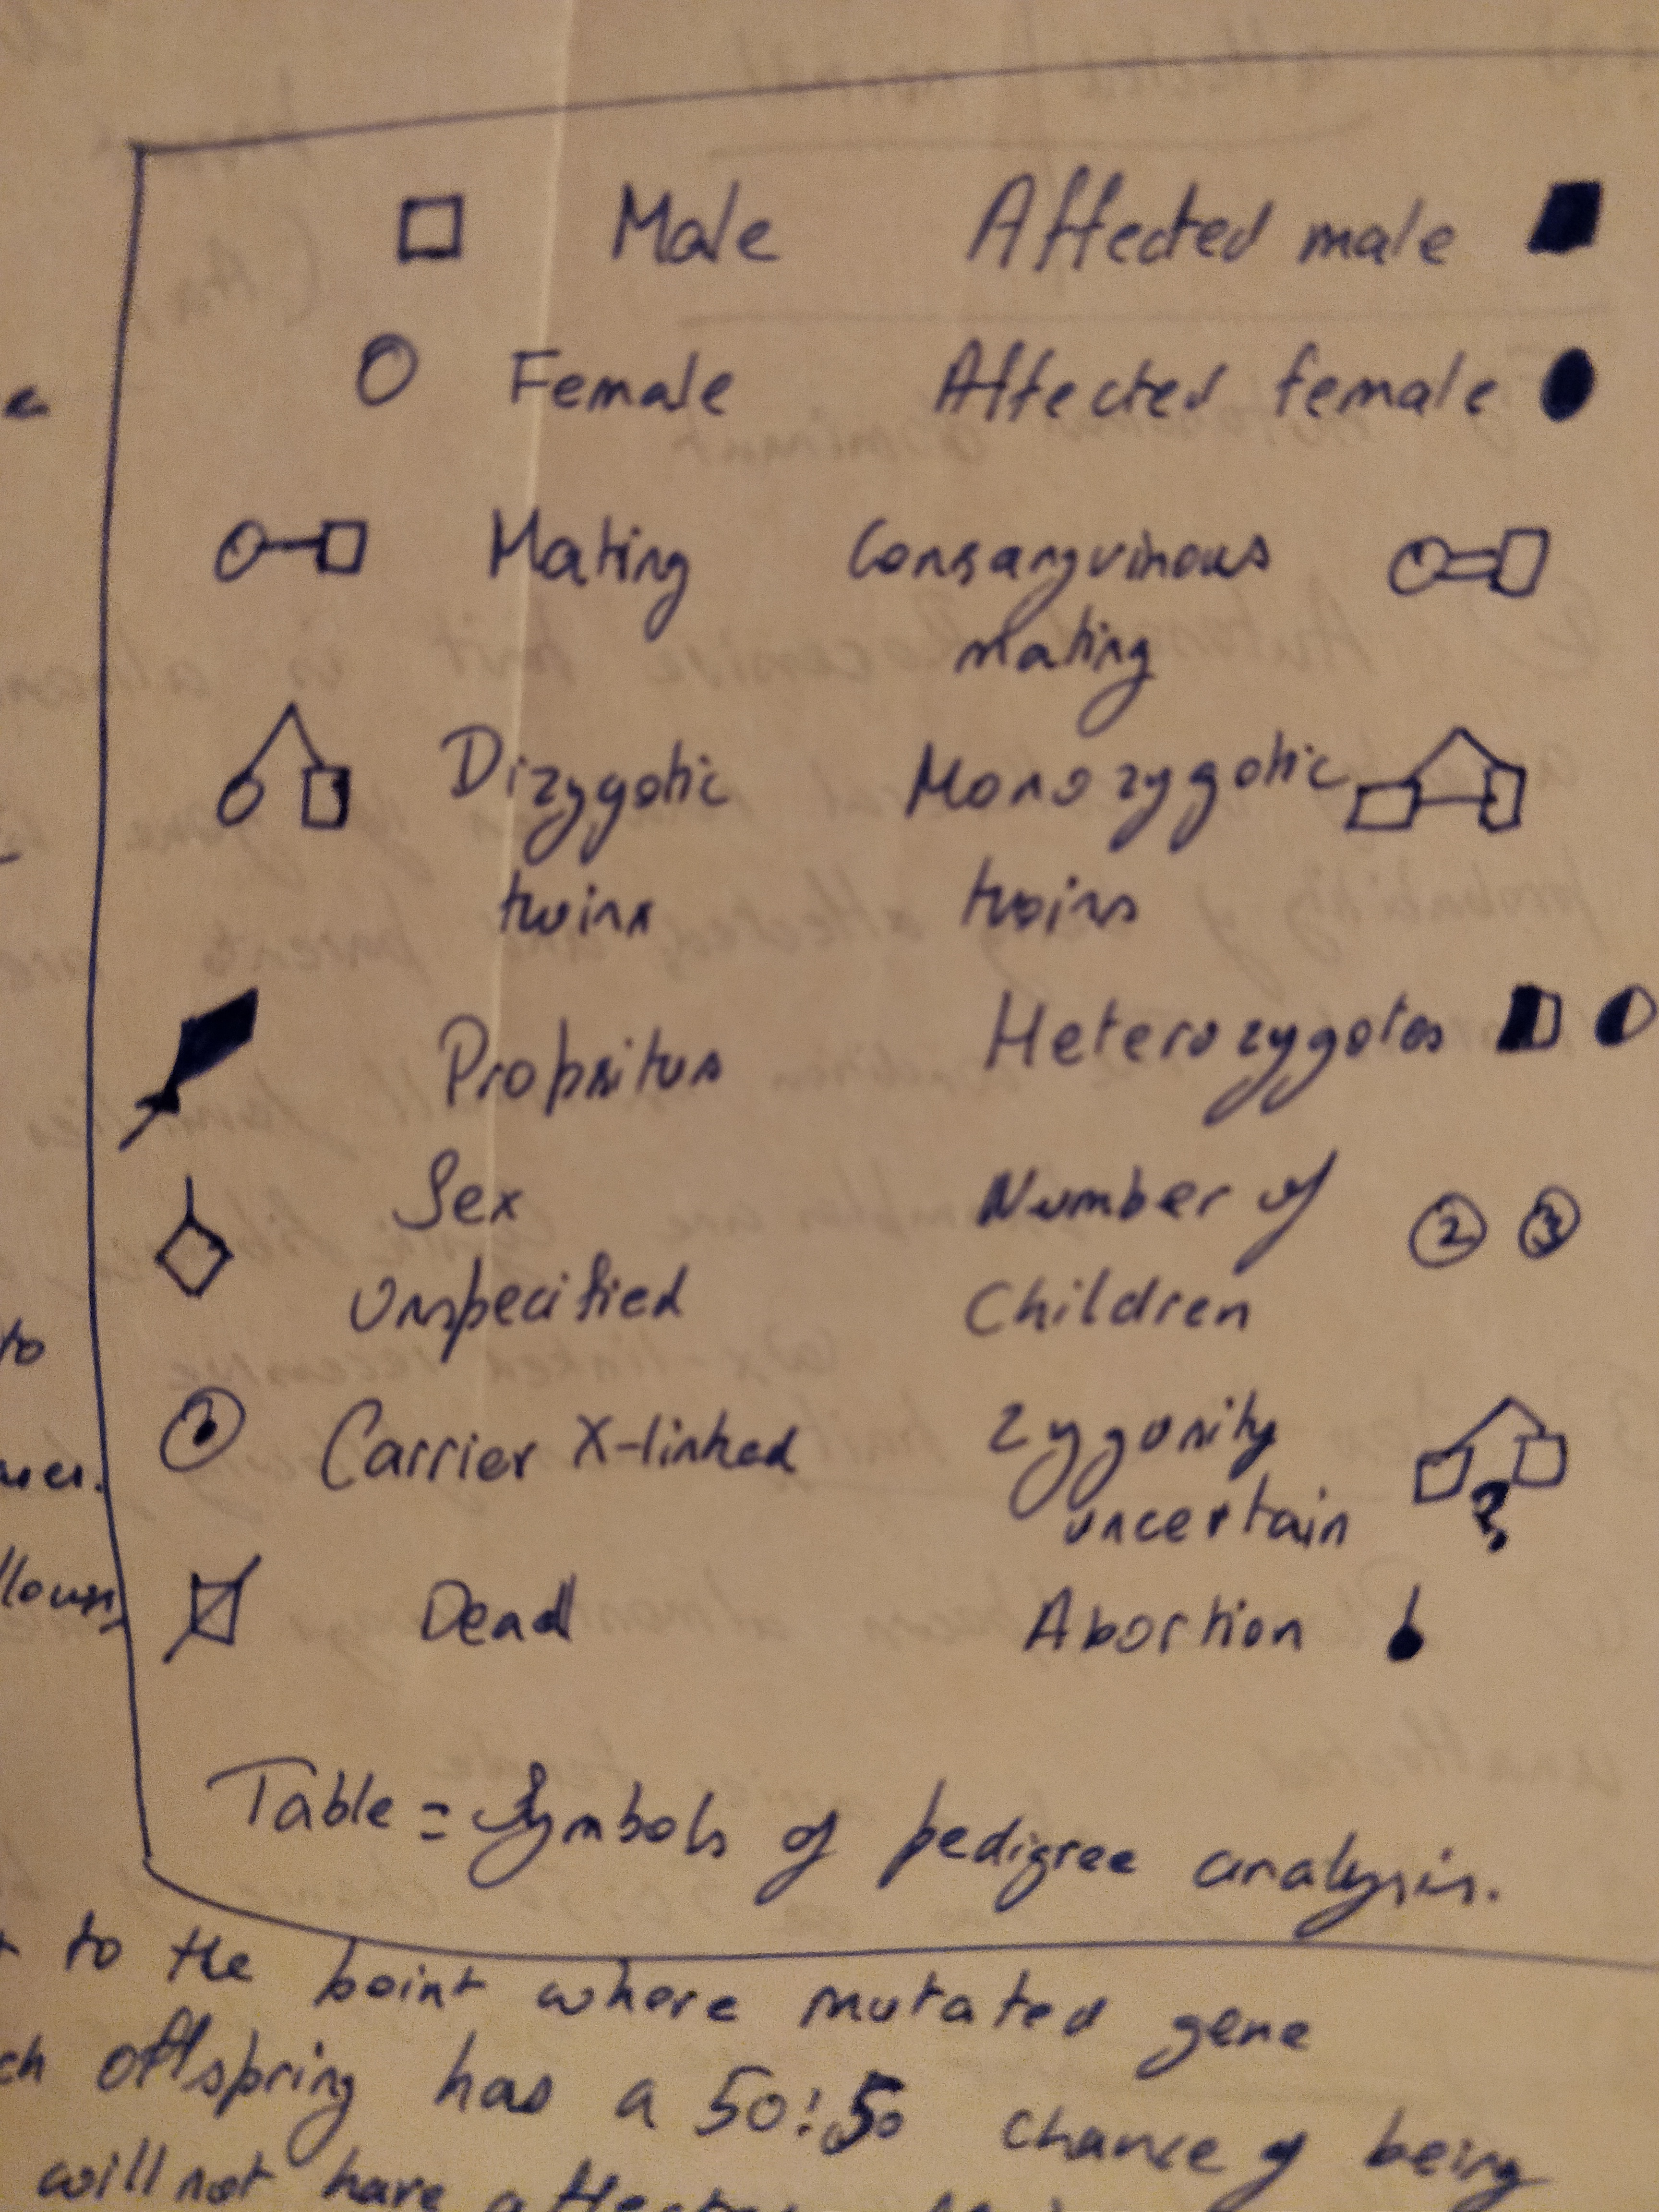 Male Affected male
Female Affected female
Mating Consanguinous
mating
Dizygotic Monozygotic
twins twins
Propsitus Heterozygotes
Sex Number of
Unspecified Children
2 3
Carrier X-linked Zygosity
uncertain
?
Dead Abortion
Table = Symbols of pedigree analysis.
to
to the point where mutated gene
offspring has a 50:50 chance of being
will not have